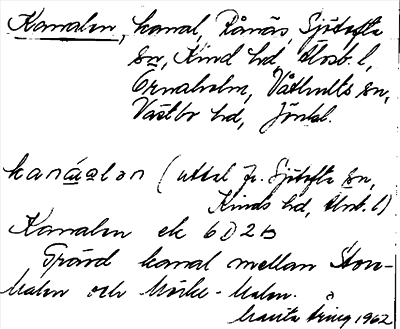 Kanalen, kanal, Rånäs, Sjötofta
sn, Kind hd, Älvsb. l,
Ernaholm, Våthults sn,
Västbo hd, Jönkl.
kanáalən (uttal fr. Sjötofta sn,
Kinds hd, Älvsb. l)
Kanalen ek 6D2b
Grävd kanal mellan Stor-
kalm och Mörke-kalm.
Marita 1962